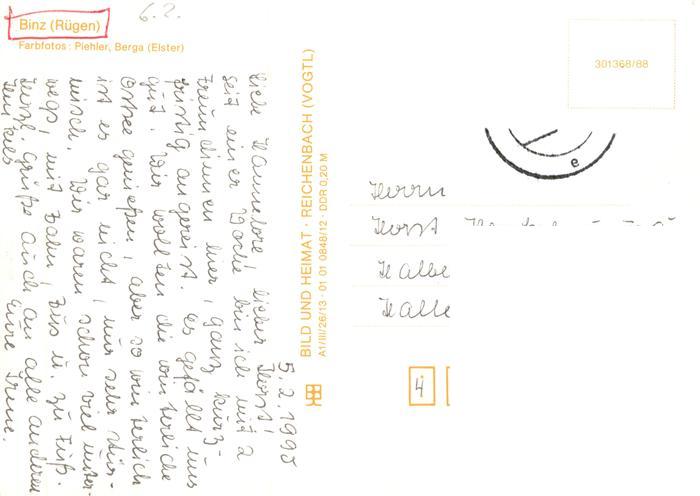 6.2.
Binz (Rügen)
Farbfotos: Piehler, Berga (Elster)
5.2.1995
Liebe Hannelore, lieber Horst!
Seit einer Woche bin ich mit 2
Freundinnen hier, ganz kurz-
fristig angereist. Es gefällt uns
gut. Wir wollten die winterliche
Ostsee genießen, aber so winterlich
ist es gar nicht, nur sehr stür-
misch. Wir waren schon viel unter-
wegs, mit Bahn, Bus u. zu Fuß.
Herzl. Grüße auch an alle anderen
Eure Irme.
BILD UND HEIMAT · REICHENBACH (VOGTL)
A1/III/26/13 · 01 01 0848/12 · DDR 0,20 M
301368/88
e
Herrn
Horst
Halle
4